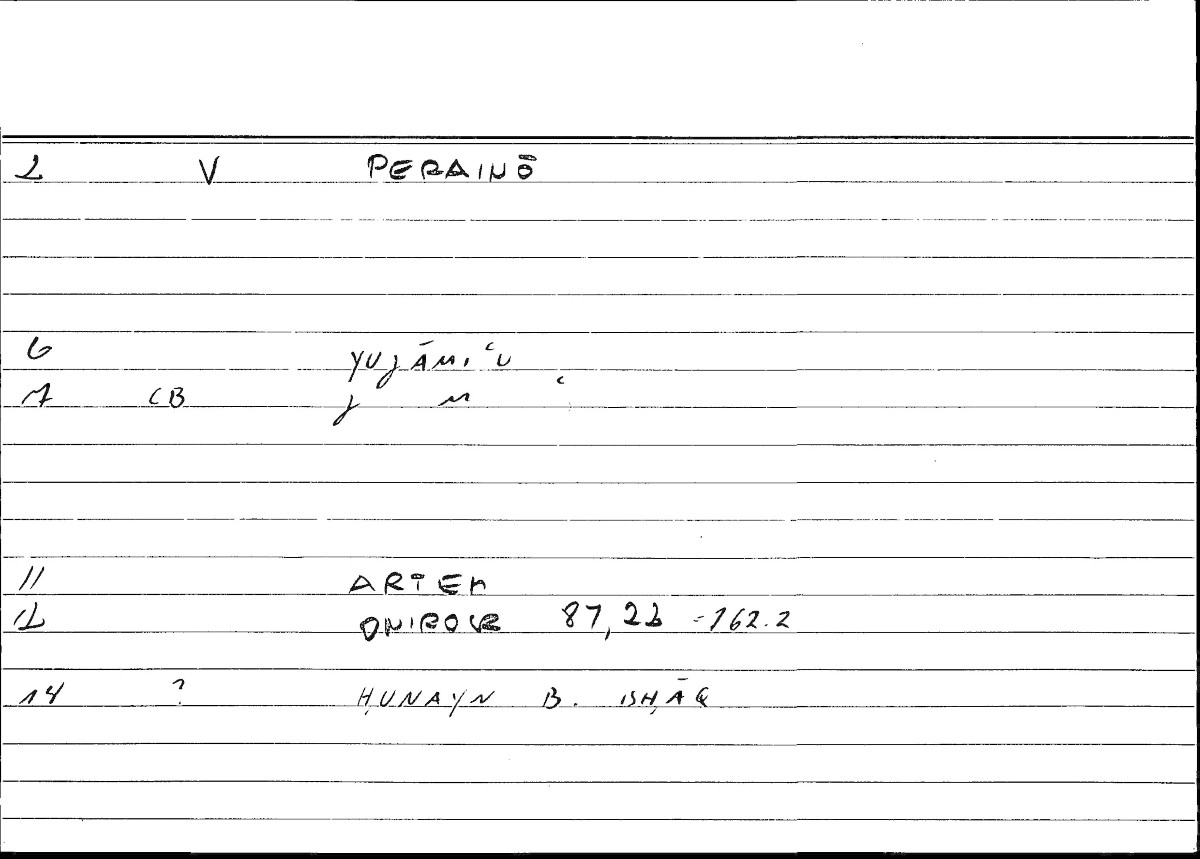 2 V PERAINŌ
6 YUJĀMIʿU
7 CB J M ʿ
11 ARTEM
12 ONIROCR 87,22 =162.2
14 ? ḤUNAYN B. ISḤĀQ